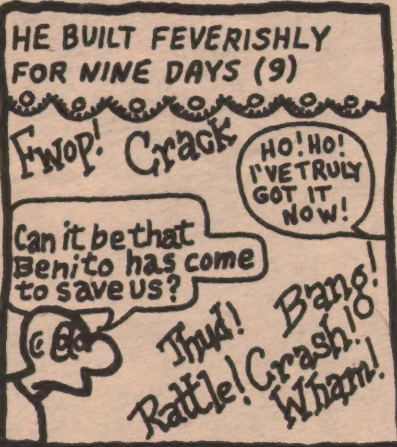 HE BUILT FEVERISHLY
FOR NINE DAYS (9)
Fwop! Crack
HO! HO!
I'VE TRULY
GOT IT
NOW!
Can it be that
Benito has come
to save us?
Thud! Bang!
Rattle! Crash!
Wham!